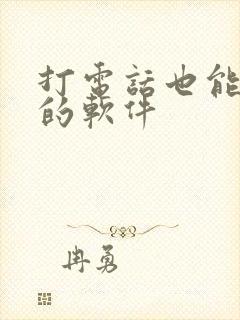 打電話也能
的軟件
冉勇